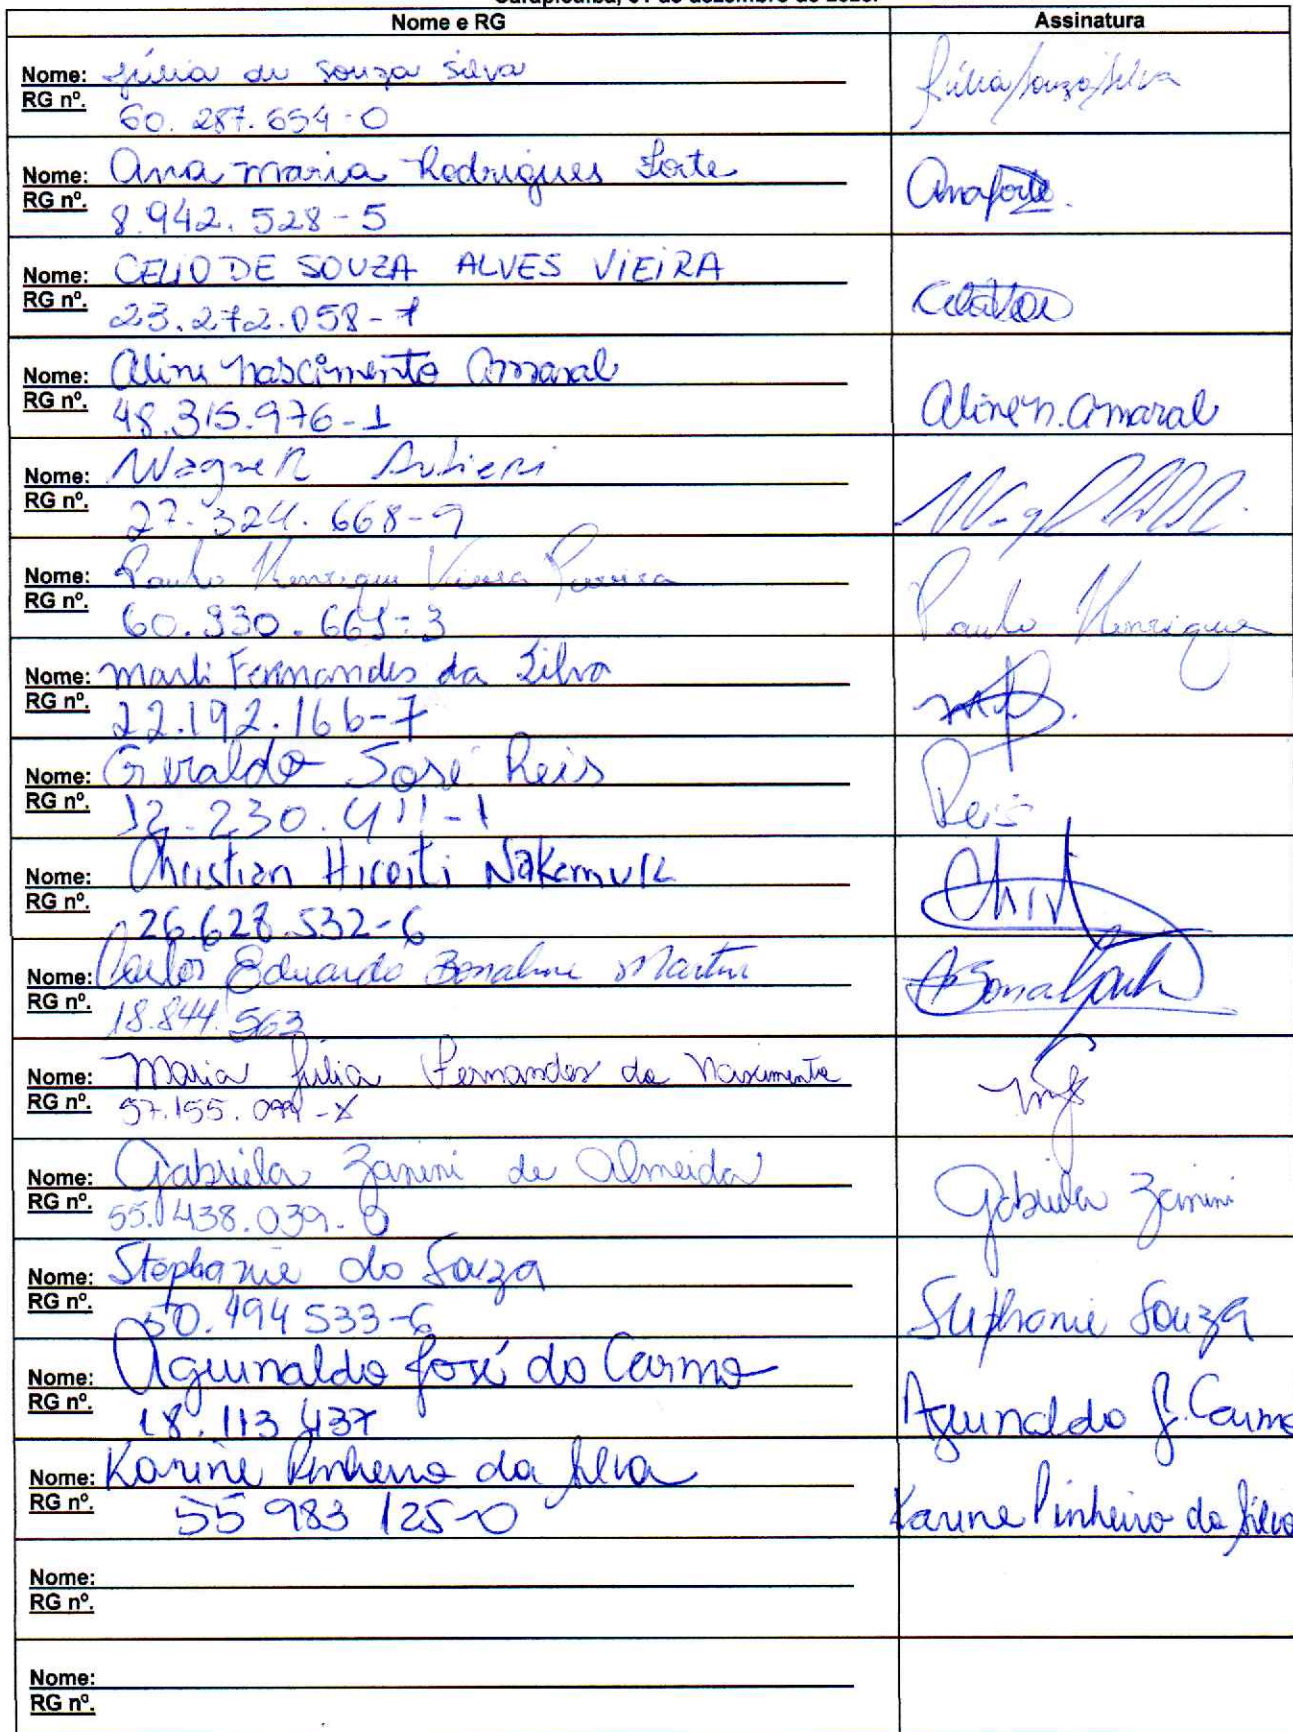 Carapicuíba, 01 de dezembro de 2023.
Nome e RG Assinatura
Nome: Júlia de Souza Silva
RG nº. 60.287.654-0 Júlia Souza Silva
Nome: Ana maria Rodrigues Forte
RG nº. 8.942.528-5 Anaforte.
Nome: CELIO DE SOUZA ALVES VIEIRA
RG nº. 23.272.058-1
Nome: Aline Nascimento Amaral
RG nº. 48.315.976-1 Aline n. Amaral
Nome: Wagner
RG nº. 27.324.668-9
Nome: Paulo Henrique Vieira
RG nº. 60.330.661-3 Paulo Henrique
Nome: Marli Fernandes da Silva
RG nº. 22.192.166-7
Nome: Geraldo José Reis
RG nº. 12.230.411-1 Reis
Nome: Christian Hiroiti Nakamura
RG nº. 26.628.532-6
Nome: Carlos Eduardo
RG nº. 18.844.563
Nome: Maria Júlia Fernandes do Nascimento
RG nº. 57.155. -X
Nome: Gabriela Zanini de Almeida
RG nº. 55.438.039-0 Gabriela Zanini
Nome: Stephanie do Souza
RG nº. 50.494533-6 Stephanie Souza
Nome: Aguinaldo José do Carmo
RG nº. 18.113437 Aguinaldo J. Carmo
Nome: Karine Pinheiro da Silva
RG nº. 55 983 125-0 Karine Pinheiro da Silva
Nome:
RG nº.
Nome:
RG nº.